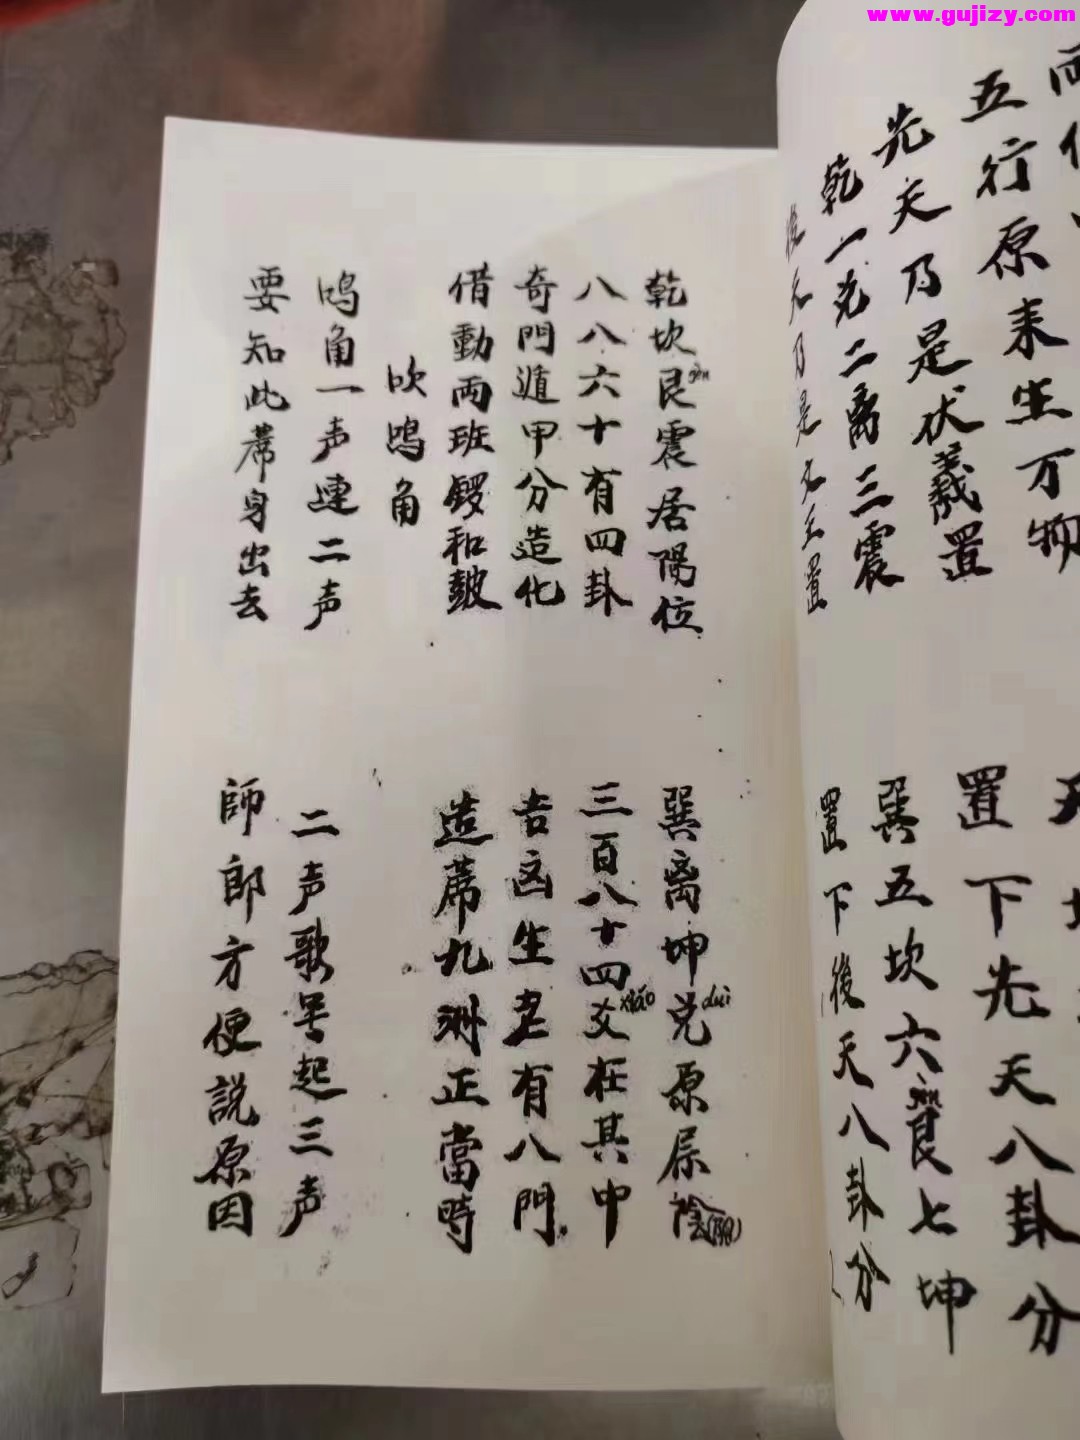 www.gujizy.com
五行原来生万物
置下先天八卦分
先天乃是伏羲置
乾一兑二离三震
巽五坎六艮七坤
gèn
後天乃是文王置
置下後天八卦分
乾坎艮震居陽位
gèn
巽离坤兑原属陰(阴)
duì
八八六十有四卦
三百八十四爻在其中
xiáo
奇門遁甲分造化
吉凶生老有八門
借動兩班锣和鼓
造蓆九洲正當時
吹鸣角
鸣角一声連二声
二声歌罢起三声
要知此蓆身出去
師郎方便説原因